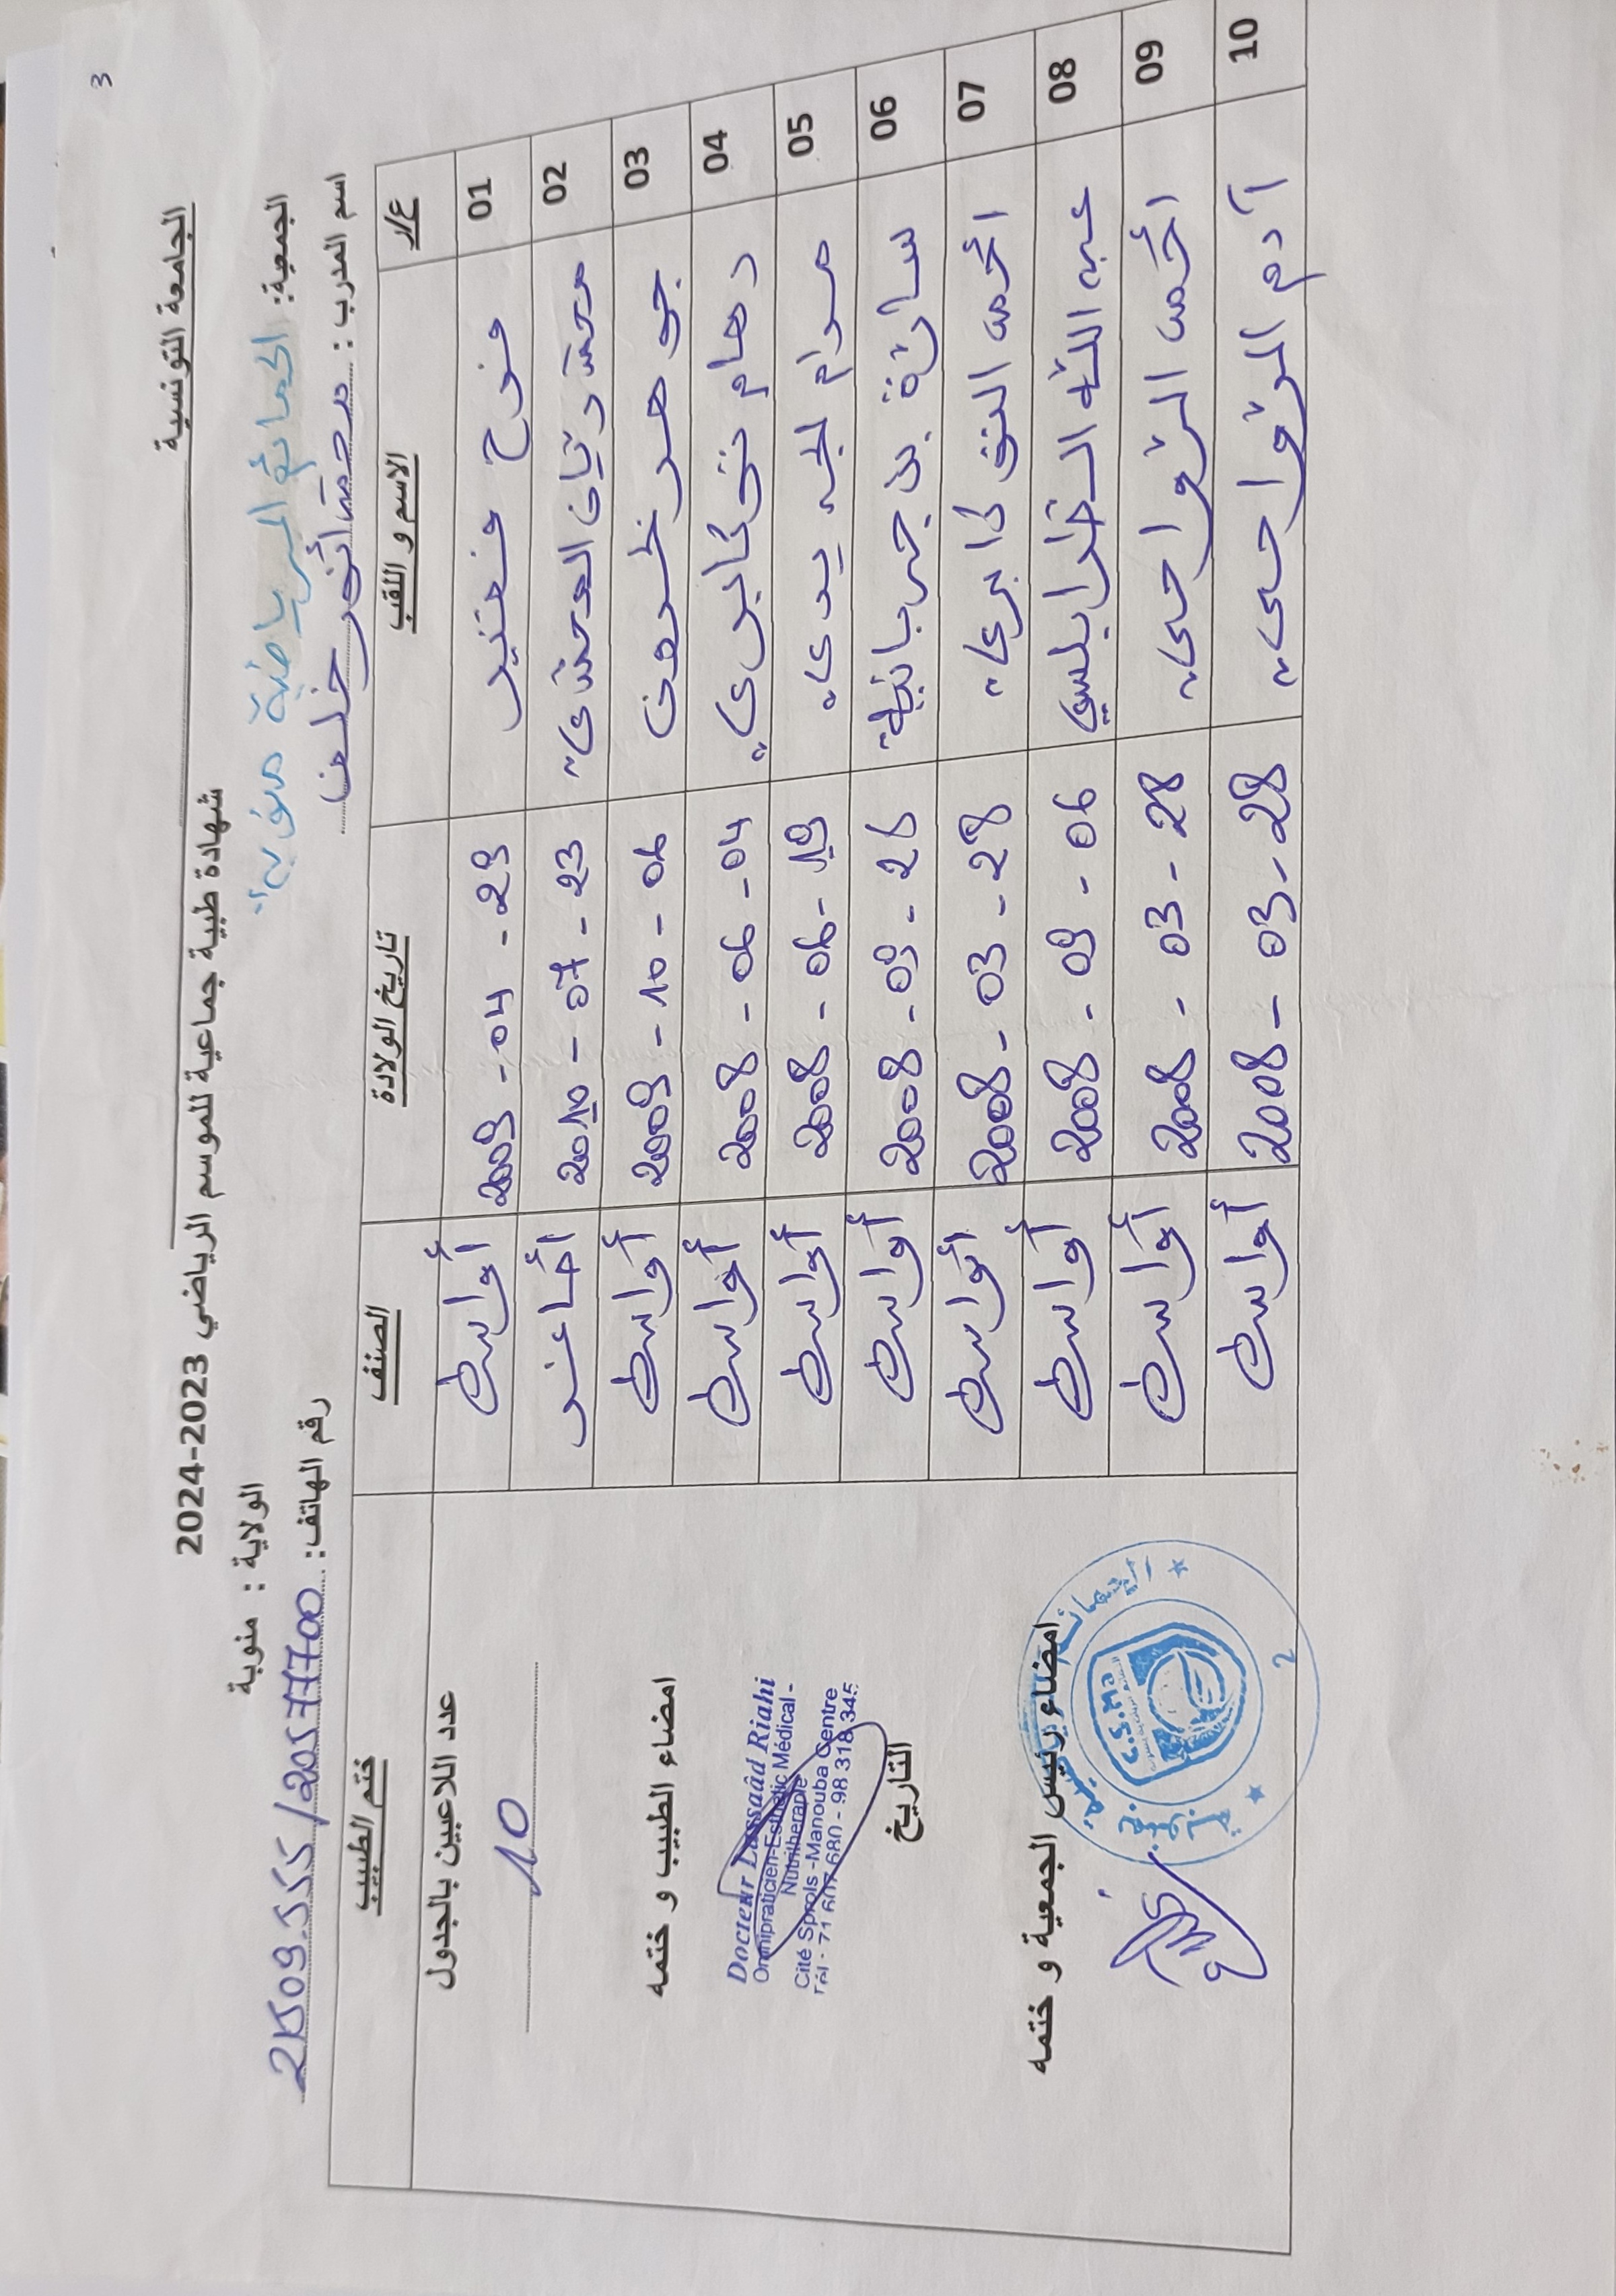 3
الجامعة التونسية
شهادة طبية جماعية للموسم الرياضي 2023-2024
الجمعية: الحمائم الرياضية منوبة
الولاية : منوبة
اسم المدرب : محمد أنور خلف
رقم الهاتف: 21509555/20577700
ع/ر الاسم و اللقب تاريخ الولادة الصنف ختم الطبيب
01 فرح 2009-04-29 أواسط
02 محمد ريان المحمدي 2010-07-23 أصاغر
03 جوهر خريف 2009-10-06 أواسط
04 2008-06-04 أواسط
05 مرام 2008-06-19 أواسط
06 سارة بن جربانية 2008-09-28 أواسط
07 أحمد 2008-03-28 أواسط
08 عبد الله الطرابلسي 2008-09-06 أواسط
09 أحمد الرواحي 2008-03-28 أواسط
10 آدم الرواحي 2008-03-28 أواسط
عدد اللاعبين بالجدول
10
امضاء الطبيب و ختمه
Docteur Lassâd Riahi
Omnipraticien-Esthetic Médical -
Nutritherapie
Cité Sprols -Manouba Centre
Tél : 71 607 680 - 98 318 345
التاريخ
امضاء رئيس الجمعية و ختمه
C.S.Ma
2